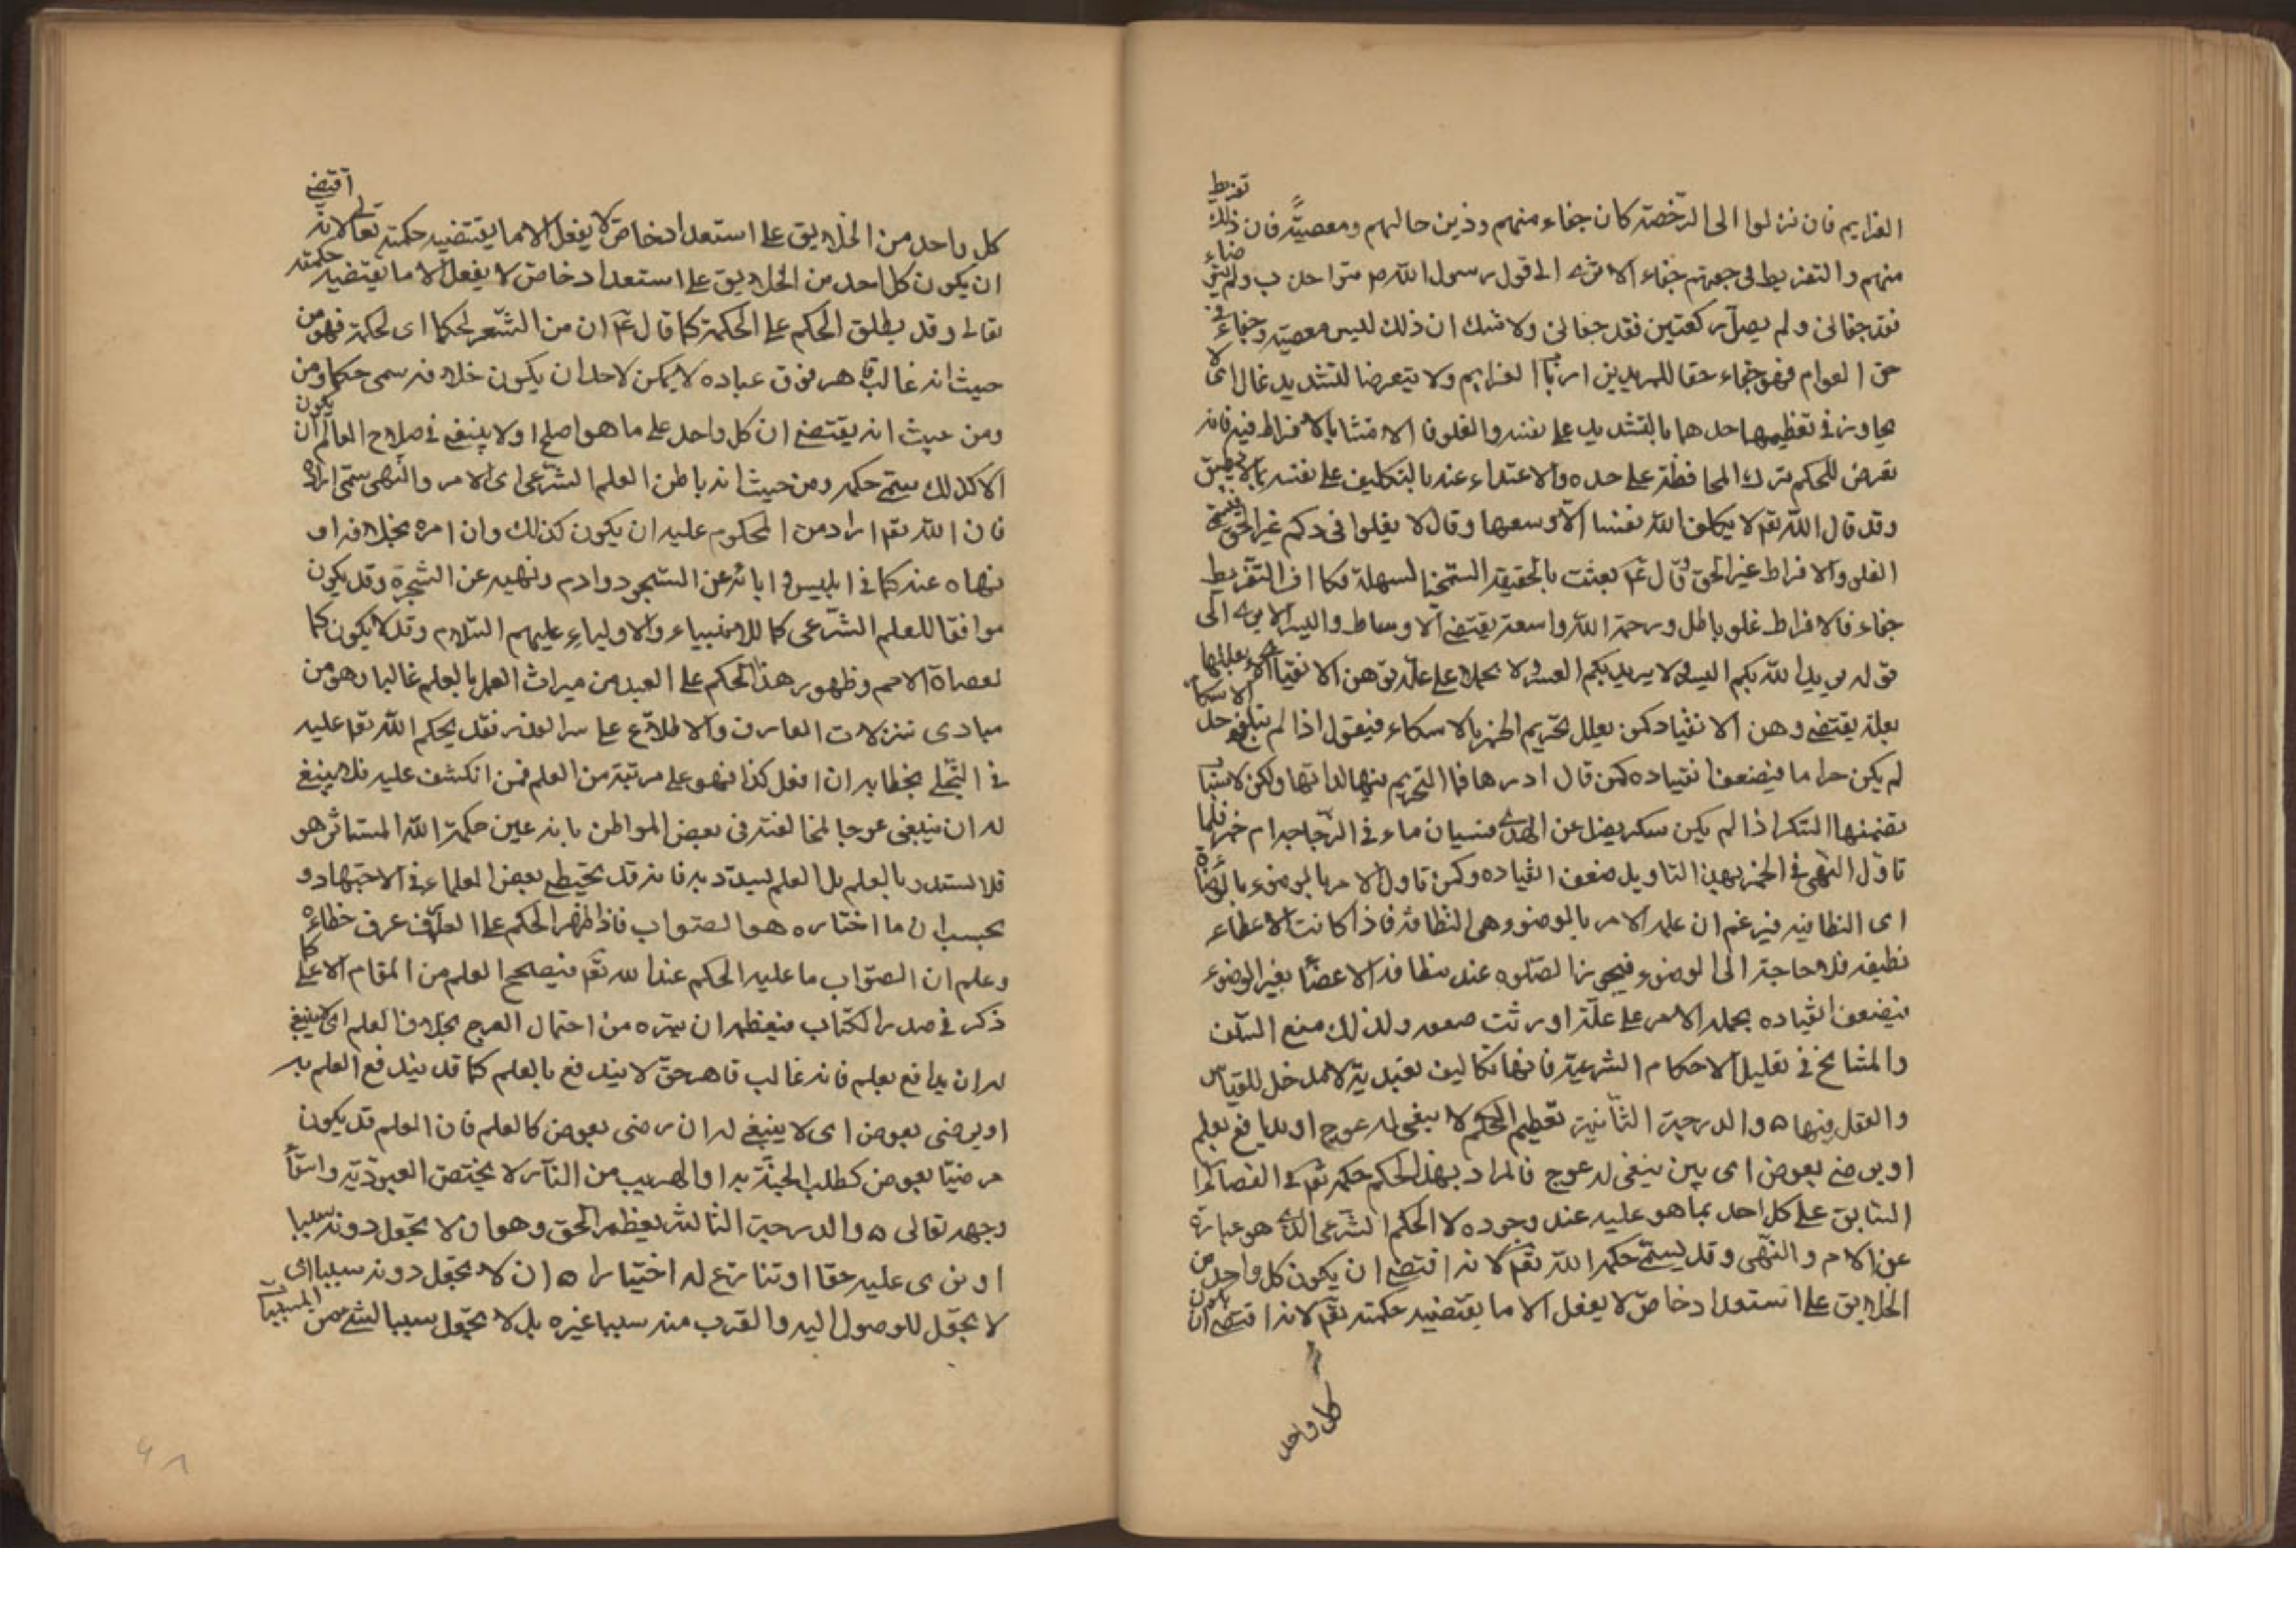 العزايم فان نزلوا الى الرخصة كان جفاء منهم وذين حالهم ومعصية فان ذلك تفريط
منهم والتفريط فى جهتهم جفاء الا ترى الى قول رسول الله ص من احدث ولم يتوضاء
فقد جفانى ولم يصل ركعتين فقد جفانى ولا شك ان ذلك ليس معصيته وجفاء فى
حق العوام فهو جفاء حقا للمريدين ارباب العزايم ولا يتعرضا لتشديد غال اى لا
يجاوز فى تعظيمها حدها بالتشديد على نفسه والغلو فا الامتشا بالافراط فيه فانه
تعرض للحكم بترك المحافظة على حده والاعتداء عنه بالتكليف على نفسه بما لا يطيق
وقد قال الله تعم لا يكلف الله نفسا الا وسعها وقال لا يغلوا فى دكم غير الحق
الغلو والافراط غير الحق وقال عم بعثت بالحقيقة السمحة السهلة فكما ان التفريط
جفاء فالافراط غلو باطل ورحمة الله واسعة يقتضى الاوساط واليسر الا يرى الى
قوله يريد الله بكم اليسر ولا يريد بكم العسر ولا يحملا على علة توهن الانقياد اى لا يعللها
بعلة يقتضى وهن الانقياد كمن يعلل تحريم الخمر بالاسكار فيقول اذا لم يبلغ حد الاسكار
لم يكن حراما فيضعف انقياده كمن قال ادرها فما التحريم منها لذاتها ولكن لاسباب
تضمنها السكر اذا لم يكن سكر يضل عن الهدى فسيان ماء فى الزجاجة ام خمر فلما
تاول النهى فى الخمر بهذا التاويل ضعف انقياده وكمن تاول الامر بالوضوء بالوضاءة
اى النظافيه فيزعم ان علة الامر بالوضو وهى النظافة فاذا كانت الاعضاء
نظيفه فلا حاجة الى الوضوء فيجوز الصلوه عند نظافة الاعضا بغير الوضوء
فيضعف انقياده بحمله الامر على علة اورثت ضعفه ولذلك منع السلف
والمشايخ فى تعليل الاحكام الشرعية فانها تكاليف تعبدية لا مدخل للقياس
والعقل فيها ه والدرجة الثانية تعظيم الحكم لا يبغى له عوج او يدافع بعلم
او يرضى بعوض اى بين ينبغى له عوج فالمراد بهذا الحكم حكمه تعم فى القضاء
السابق على كل احد بما هو عليه عند وجوده لا الحكم الشرعى الذى هو عبارة
عن الامر والنهى وقد يسمى حكم الله تعم لانه اقتضى ان يكون كل واحد من
الخلايق على استعداد خاص لا يفعل الا ما يقتضيه حكمته تعم لانه اقتضى ان يكون
كل واحد
كل واحد من الخلايق على استعداد خاص لا يفعل الا ما يقتضيه حكمته تعالى لانه اقتضى
ان يكون كل احد من الخلايق على استعداد خاص لا يفعل الا ما يقتضيه حكمته
تعالى وقد يطلق الحكم على الحكمة كما قال عم ان من الشعر لحكما اى لحكمة فهو من
حيث انه غالب قاهر فوق عباده لا يمكن لاحد ان يكون خلافه سمى حكما ومن
ومن حيث انه يقتضى ان كل واحد على ما هو اصلح اولا ينبغى فى صلاح العالم ان يكون
الا كذلك سمى حكمه ومن حيث انه باطن العلم الشرعى اى الامر والنهى سمى ارادة
فان الله تعم اراد من المحكوم عليه ان يكون كذلك وان امره بخلافه او
نهاه عنه كما فى ابليس و ابائه عن السجود وادم ونهيه عن الشجرة وقد يكون
موافقا للعلم الشرعى كما للانبياء والاولياء عليهم السلام وقد لا يكون كما
لعصاة الامم وظهور هذا الحكم على العبد من ميراث العمل بالعلم غالبا وهو من
مبادى تنزلات العارف والاطلاع على سر القدر فقد يحكم الله تعم عليه
فى التجلى بخطابه ان افعل كذا فهو على مرتبة من العلم فمن انكشف عليه فلا ينبغى
له ان يبغى عوجا لمخالفته فى بعض المواطن بانه عين حكمة الله المستاثر هو
فلا يستدر بالعلم بل العلم يسدد به فانه قد يخيط بعض العلماء فى الاجتهاد و
بحسب ان ما اختاره هو الصواب فاذا ظهر الحكم على العارف عرف خطاءه
وعلم ان الصواب ما عليه الحكم عند الله تعم فيصلح العلم من المقام الاعلى كما
ذكر فى صدر الكتاب فتعظيمه ان ينزه من احتمال العوج بخلاف العلم اى لا ينبغى
له ان يدافع بعلم فانه غالب قاهر حق لا يندفع بالعلم كما قد يندفع العلم به
او يرضى بعوض اى لا ينبغى له ان يرضى بعوض كالعلم فان العلم قد يكون
مرضيا بعوض كطلب الجنة به او الهرب من النار لا يختص العبودية وابتغاء
وجهه تعالى ه والدرجة الثالثة تعظيم الحق وهو ان لا تجعل دونه سببا
او يرى عليه حقا او تنازع له اختيارا ه ان لا تجعل دونه سببا اى
لا تجعل للوصول اليه والقرب منه سببا غيره بل لا تجعل سببا لشىء من المسببات